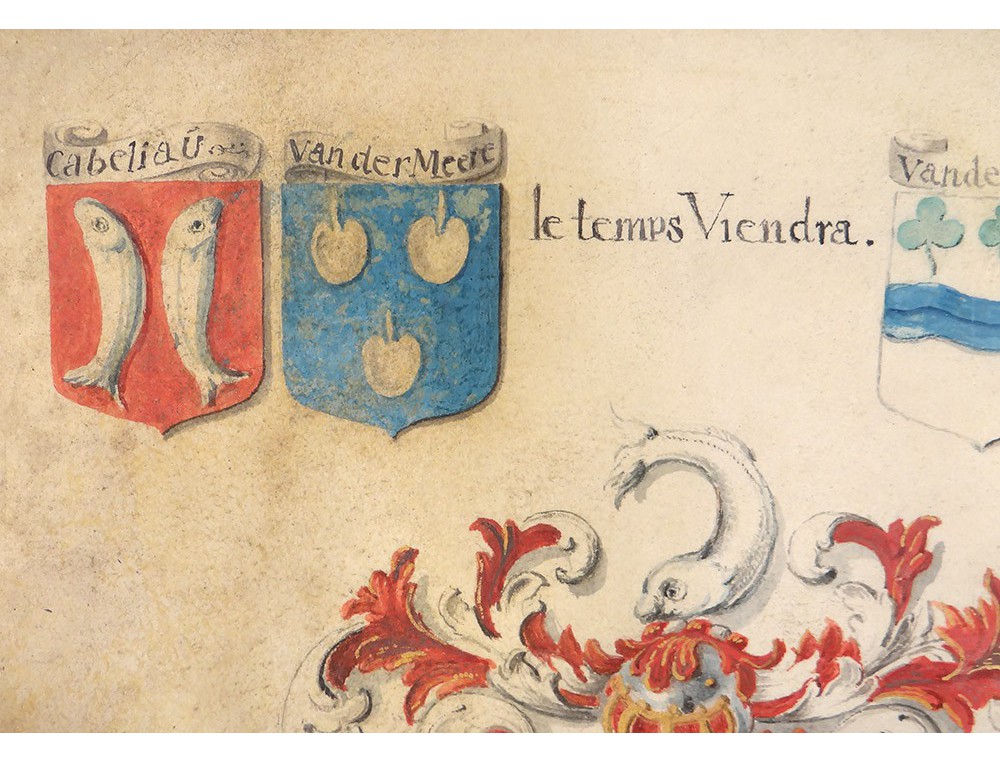 Cabeliaŭ
Van der Meere
le temps Viendra.
Vande